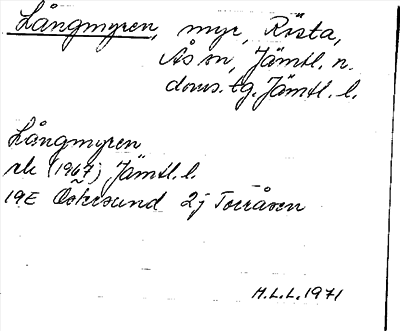 Långmyren, myr, Rösta,
Ås sn, Jämtl. n.
doms. tg. Jämtl. l.
Långmyren
rk (1967) Jämtl. l.
19E Östersund 2j Torråsen
H.L.L. 1971